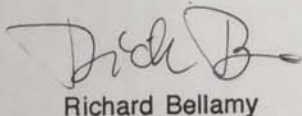 Dick B
Richard Bellamy